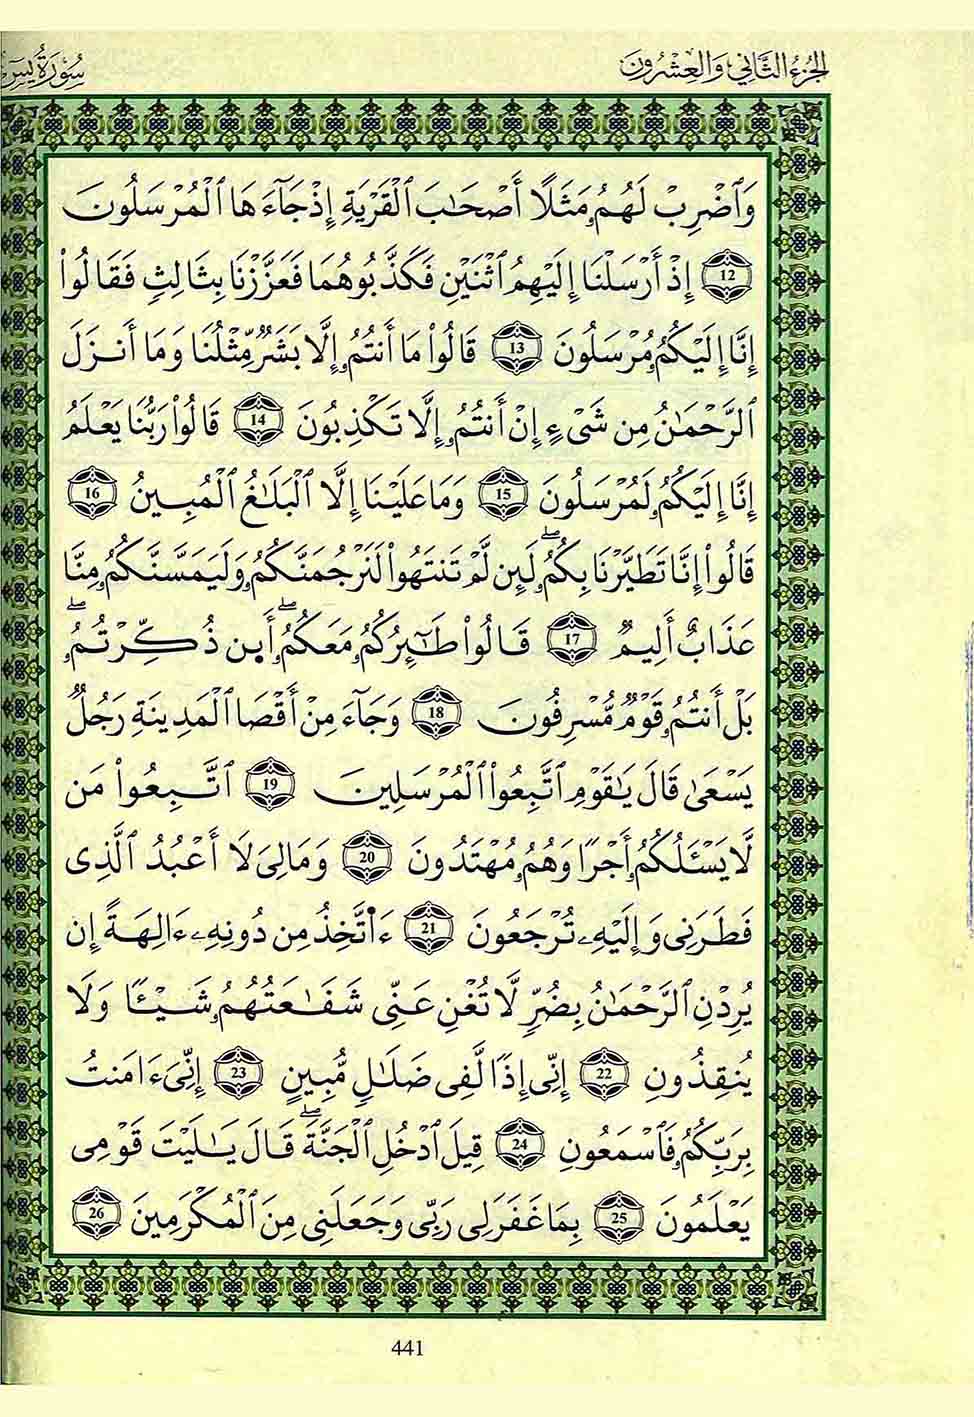 الجزء الثاني والعشرون
سورة يس
وَٱضْرِبْ لَهُمُۥ مَثَلًا أَصْحَٰبَ ٱلْقَرْيَةِ إِذْ جَآءَهَا ٱلْمُرْسَلُونَ
12 إِذْ أَرْسَلْنَا إِلَيْهِمُ ٱثْنَيْنِ فَكَذَّبُوهُمَا فَعَزَّزْنَا بِثَالِثٍ فَقَالُوا۟
إِنَّا إِلَيْكُمُۥ مُرْسَلُونَ 13 قَالُوا۟ مَا أَنتُمُۥ إِلَّا بَشَرٌ مِّثْلُنَا وَمَا أَنزَلَ
ٱلرَّحْمَٰنُ مِن شَىْءٍ إِنْ أَنتُمُۥ إِلَّا تَكْذِبُونَ 14 قَالُوا۟ رَبُّنَا يَعْلَمُ
إِنَّا إِلَيْكُمُۥ لَمُرْسَلُونَ 15 وَمَا عَلَيْنَا إِلَّا ٱلْبَلَٰغُ ٱلْمُبِينُ 16
قَالُوا۟ إِنَّا تَطَيَّرْنَا بِكُمُۥۖ لَئِن لَّمْ تَنتَهُوا۟ لَنَرْجُمَنَّكُمُۥ وَلَيَمَسَّنَّكُمُۥ مِنَّا
عَذَابٌ أَلِيمٌ 17 قَالُوا۟ طَٰٓئِرُكُمُۥ مَعَكُمُۥۖ أَىِٕن ذُكِّرْتُمُۥۖ
بَلْ أَنتُمُۥ قَوْمٌ مُّسْرِفُونَ 18 وَجَآءَ مِنْ أَقْصَا ٱلْمَدِينَةِ رَجُلٌ
يَسْعَىٰ قَالَ يَٰقَوْمِ ٱتَّبِعُوا۟ ٱلْمُرْسَلِينَ 19 ٱتَّبِعُوا۟ مَن
لَّا يَسْـَٔلُكُمُۥ أَجْرًا وَهُمُۥ مُهْتَدُونَ 20 وَمَا لِىَ لَا أَعْبُدُ ٱلَّذِى
فَطَرَنِى وَإِلَيْهِۦ تُرْجَعُونَ 21 ءَا۬تَّخِذُ مِن دُونِهِۦ ءَالِهَةً إِن
يُرِدْنِ ٱلرَّحْمَٰنُ بِضُرٍّ لَّا تُغْنِ عَنِّى شَفَٰعَتُهُمُۥ شَيْـًٔا وَلَا
يُنقِذُونِ 22 إِنِّى إِذًا لَّفِى ضَلَٰلٍ مُّبِينٍ 23 إِنِّىَ ءَامَنتُ
بِرَبِّكُمُۥ فَٱسْمَعُونِ 24 قِيلَ ٱدْخُلِ ٱلْجَنَّةَۖ قَالَ يَٰلَيْتَ قَوْمِى
يَعْلَمُونَ 25 بِمَا غَفَرَ لِى رَبِّى وَجَعَلَنِى مِنَ ٱلْمُكْرَمِينَ 26
441